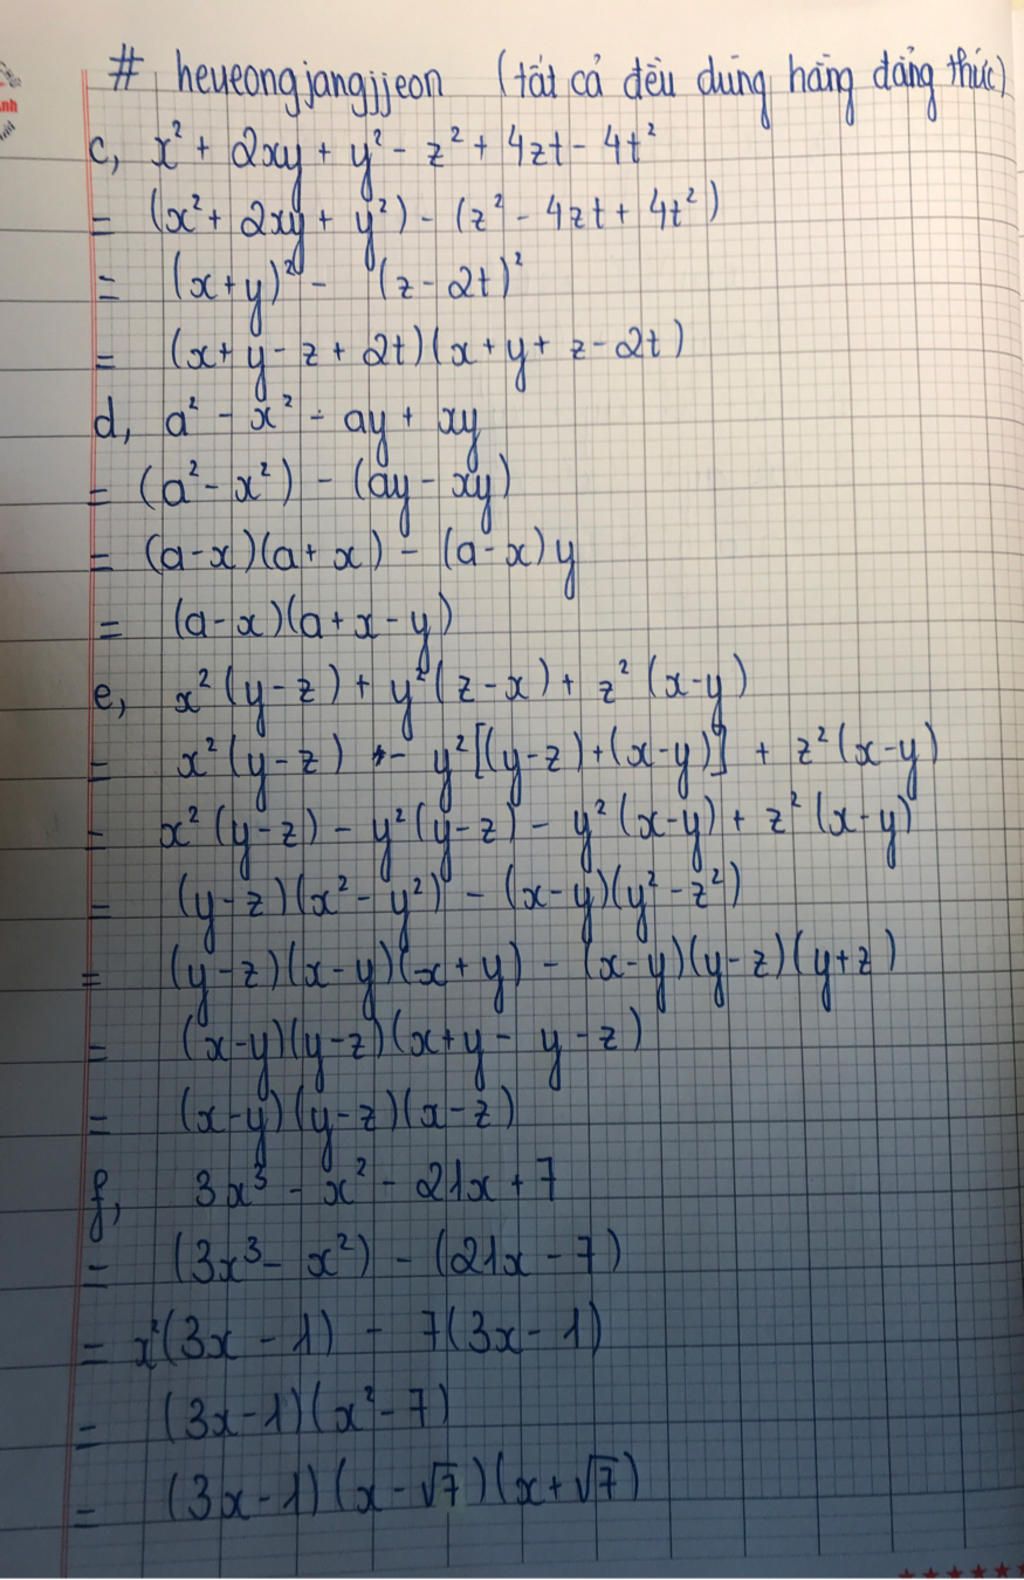 # heyeongjangjjeon (tất cả đều dùng hằng đẳng thức)
c, x² + 2xy + y² - z² + 4zt - 4t²
= (x² + 2xy + y²) - (z² - 4zt + 4t²)
= (x+y)² - (z - 2t)²
= (x + y - z + 2t)(x + y + z - 2t)
d, a² - x² - ay + xy
= (a² - x²) - (ay - xy)
= (a-x)(a+x) - (a-x)y
= (a-x)(a+x-y)
e, x²(y-z) + y²(z-x) + z²(x-y)
= x²(y-z) - y²[(y-z)+(x-y)] + z²(x-y)
= x²(y-z) - y²(y-z) - y²(x-y) + z²(x-y)
= (y-z)(x²-y²) - (x-y)(y²-z²)
= (y-z)(x-y)(x+y) - (x-y)(y-z)(y+z)
= (x-y)(y-z)(x+y-y-z)
= (x-y)(y-z)(x-z)
f, 3x³ - x² - 21x + 7
= (3x³ - x²) - (21x - 7)
= x²(3x - 1) - 7(3x - 1)
= (3x-1)(x²-7)
= (3x-1)(x-√7)(x+√7)